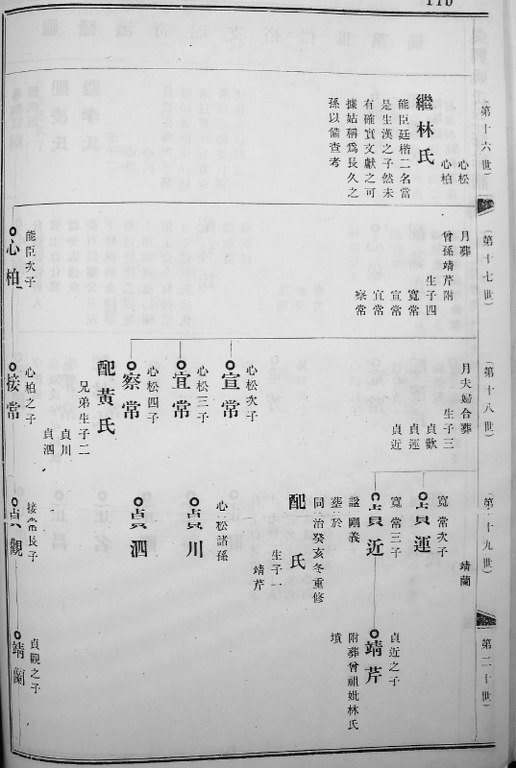 11b
第十六世
心松
心柏
繼林氏
能臣廷楷二名當
是生漢之子然未
有確實文獻之可
據姑稱爲長久之
孫以備查考
第十七世
月葬
曾孫靖芹附
生子四
寬常
宣常
宜常
察常
能臣次子
心柏
第十八世
月夫婦合葬
生子三
貞歡
貞運
貞近
心松次子
宣常
心松三子
宜常
心松四子
察常
配黃氏
兄弟生子二
貞川
貞泗
心柏之子
接常
第十九世
靖蘭
寬常次子
貞運
寬常三子
貞近
諡剛義
墓於
同治癸亥冬重修
配 氏
生子一
靖芹
心松諸孫
貞川
貞泗
接常長子
貞觀
第二十世
貞近之子
靖芹
附葬曾祖妣林氏
墳
貞觀之子
靖蘭